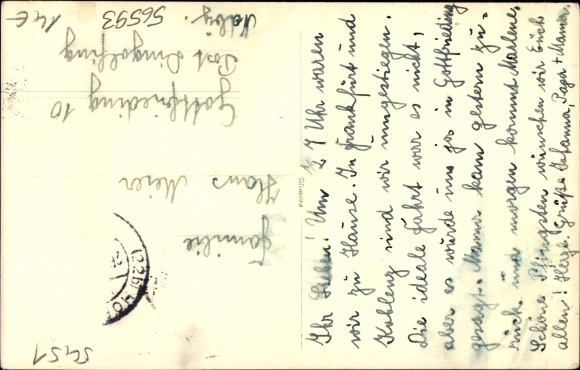 Ihr Lieben! Um ½ 7 Uhr waren
wir zu Hause. In Frankfurt und
Koblenz sind wir umgestiegen.
Die ideale Fahrt war es nicht,
aber es wurde uns ja in Gottfrieding
gesagt. Mama kam gestern zu-
rück und morgen kommt Marlene.
Schöne Pfingsten wünschen wir Euch
allen! Herzl. Grüße Johanna, Papa + Mama.
Familie
Hans Meier
Gottfrieding 10
Post Dingolfing
56593
5451